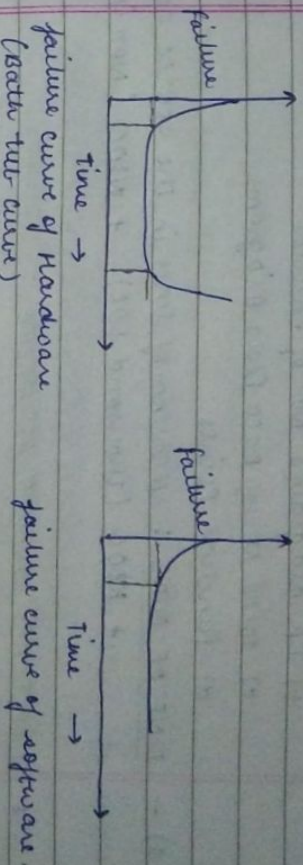 failure
Time →
failure curve of Hardware
(Bath tub curve)
failure
Time →
failure curve of software.